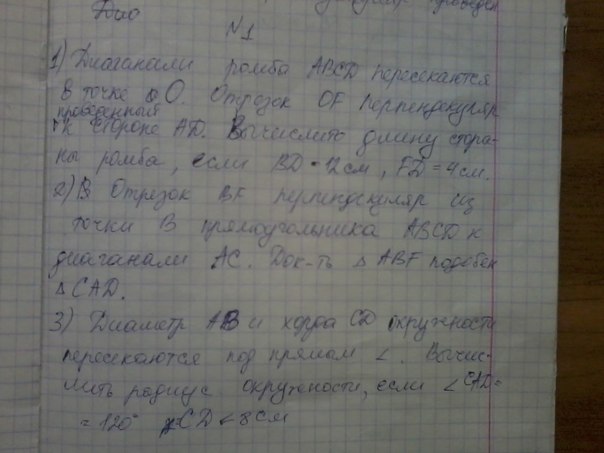 Дано
проведен
N1
1) Диаганали ромба ABCD пересекаются
в точке O. Отрезок OF перпендикуляр
проведенный
к стороне AD. Вычислите длину стора-
ны ромба, если BD = 12 см, FD = 4 см.
2) Отрезок BF перпендикуляр из
точки B прямоугольника ABCD к
диаганали AC. Док-ть △ ABF подобен
△ CAD.
3) Диаметр AB и хорда CD окружности
пересекаются под прямом ∠. Вычис-
лить радиус окружности, если ∠CAD=
= 120° CD = 8 см